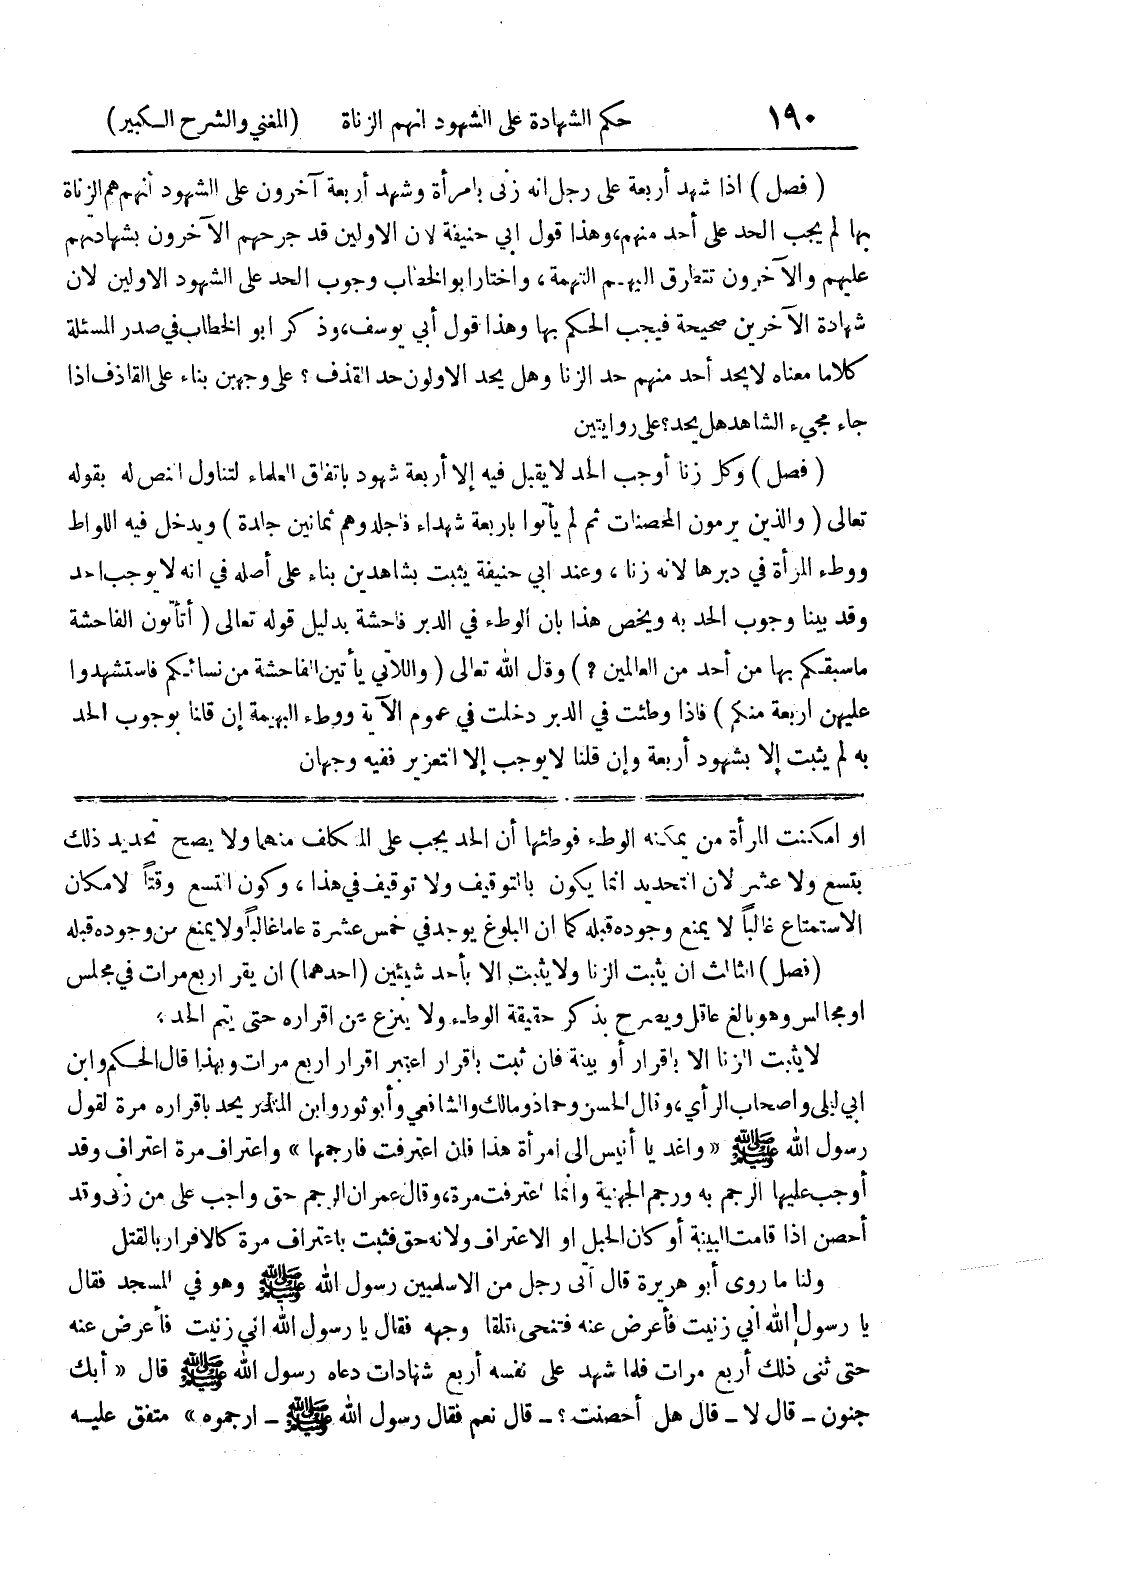 ١٩٠ حكم الشهادة على الشهود انهم الزناة (المغني والشرح الكبير)
( فصل ) اذا شهد أربعة على رجل انه زنى بامرأة وشهد أربعة آخرون على الشهود أنهم هم الزناة
بها لم يجب الحد على أحد منهم، وهذا قول ابي حنيفة لان الاولين قد جرحهم الآخرون بشهادتهم
عليهم والآخرون تتطرق اليهم التهمة ، واختار ابو الخطاب وجوب الحد على الشهود الاولين لان
شهادة الآخرين صحيحة فيجب الحكم بها وهذا قول أبي يوسف، وذكر ابو الخطاب في صدر المسئلة
كلاما معناه لا يحد أحد منهم حد الزنا وهل يحد الاولون حد القذف ؟ على وجهين بناء على القاذف اذا
جاء مجيء الشاهد هل يحد؟ على روايتين
( فصل ) وكل زنا أوجب الحد لا يقبل فيه إلا أربعة شهود باتفاق العلماء لتناول النص له بقوله
تعالى ( والذين يرمون المحصنات ثم لم يأتوا باربعة شهداء فاجلدوهم ثمانين جلدة ) ويدخل فيه اللواط
ووطء المرأة في دبرها لانه زنا ، وعند ابي حنيفة يثبت بشاهدين بناء على أصله في انه لا يوجب الحد
وقد بينا وجوب الحد به ويخص هذا بان الوطء في الدبر فاحشة بدليل قوله تعالى ( أتأتون الفاحشة
ماسبقكم بها من أحد من العالمين ؟ ) وقال الله تعالى ( واللاتي يأتين الفاحشة من نسائكم فاستشهدوا
عليهن اربعة منكم ) فاذا وطئت في الدبر دخلت في عموم الآية ووطء البهيمة إن قلنا بوجوب الحد
به لم يثبت إلا بشهود أربعة وإن قلنا لا يوجب إلا التعزير ففيه وجهان
او امكنت المرأة من يمكنه الوطء فوطئها أن الحد يجب على المكلف منهما ولا يصح تحديد ذلك
بتسع ولا عشر لان التحديد انما يكون بالتوقيف ولا توقيف في هذا ، وكون التسع وقتاً لامكان
الاستمتاع غالباً لا يمنع وجوده قبله كما ان البلوغ يوجد في خمس عشرة عاما غالباً ولا يمنع من وجوده قبله
(فصل) الثالث ان يثبت الزنا ولا يثبت الا بأحد شيئين (احدهما) ان يقر اربع مرات في مجلس
او مجالس وهو بالغ عاقل ويصرح بذكر حقيقة الوطء ولا ينزع عن اقراره حتى يتم الحد ،
لا يثبت الزنا الا باقرار أو بينة فان ثبت باقرار اعتبر اقرار اربع مرات وبهذا قال الحكم وابن
ابي ليلى واصحاب الرأي، وقال الحسن وحماد ومالك والشافعي وأبو ثور وابن المنذر يحد باقراره مرة لقول
رسول الله ﷺ « واغد يا أنيس الى امرأة هذا فان اعترفت فارجمها » واعتراف مرة اعتراف وقد
أوجب عليها الرجم به ورجم الجهنية وانما اعترفت مرة، وقال عمر ان الرجم حق واجب على من زنى وقد
أحصن اذا قامت البينة أو كان الحبل او الاعتراف ولانه حق فثبت باعتراف مرة كالاقرار بالقتل
ولنا ما روى أبو هريرة قال أتى رجل من الاسلميين رسول الله ﷺ وهو في المسجد فقال
يا رسول الله اني زنيت فأعرض عنه فتنحى تلقاء وجهه فقال يا رسول الله اني زنيت فأعرض عنه
حتى ثنى ذلك أربع مرات فلما شهد على نفسه أربع شهادات دعاه رسول الله ﷺ قال « أبك
جنون ـ قال لا ـ قال هل أحصنت ؟ ـ قال نعم فقال رسول الله ﷺ ـ ارجموه » متفق عليه